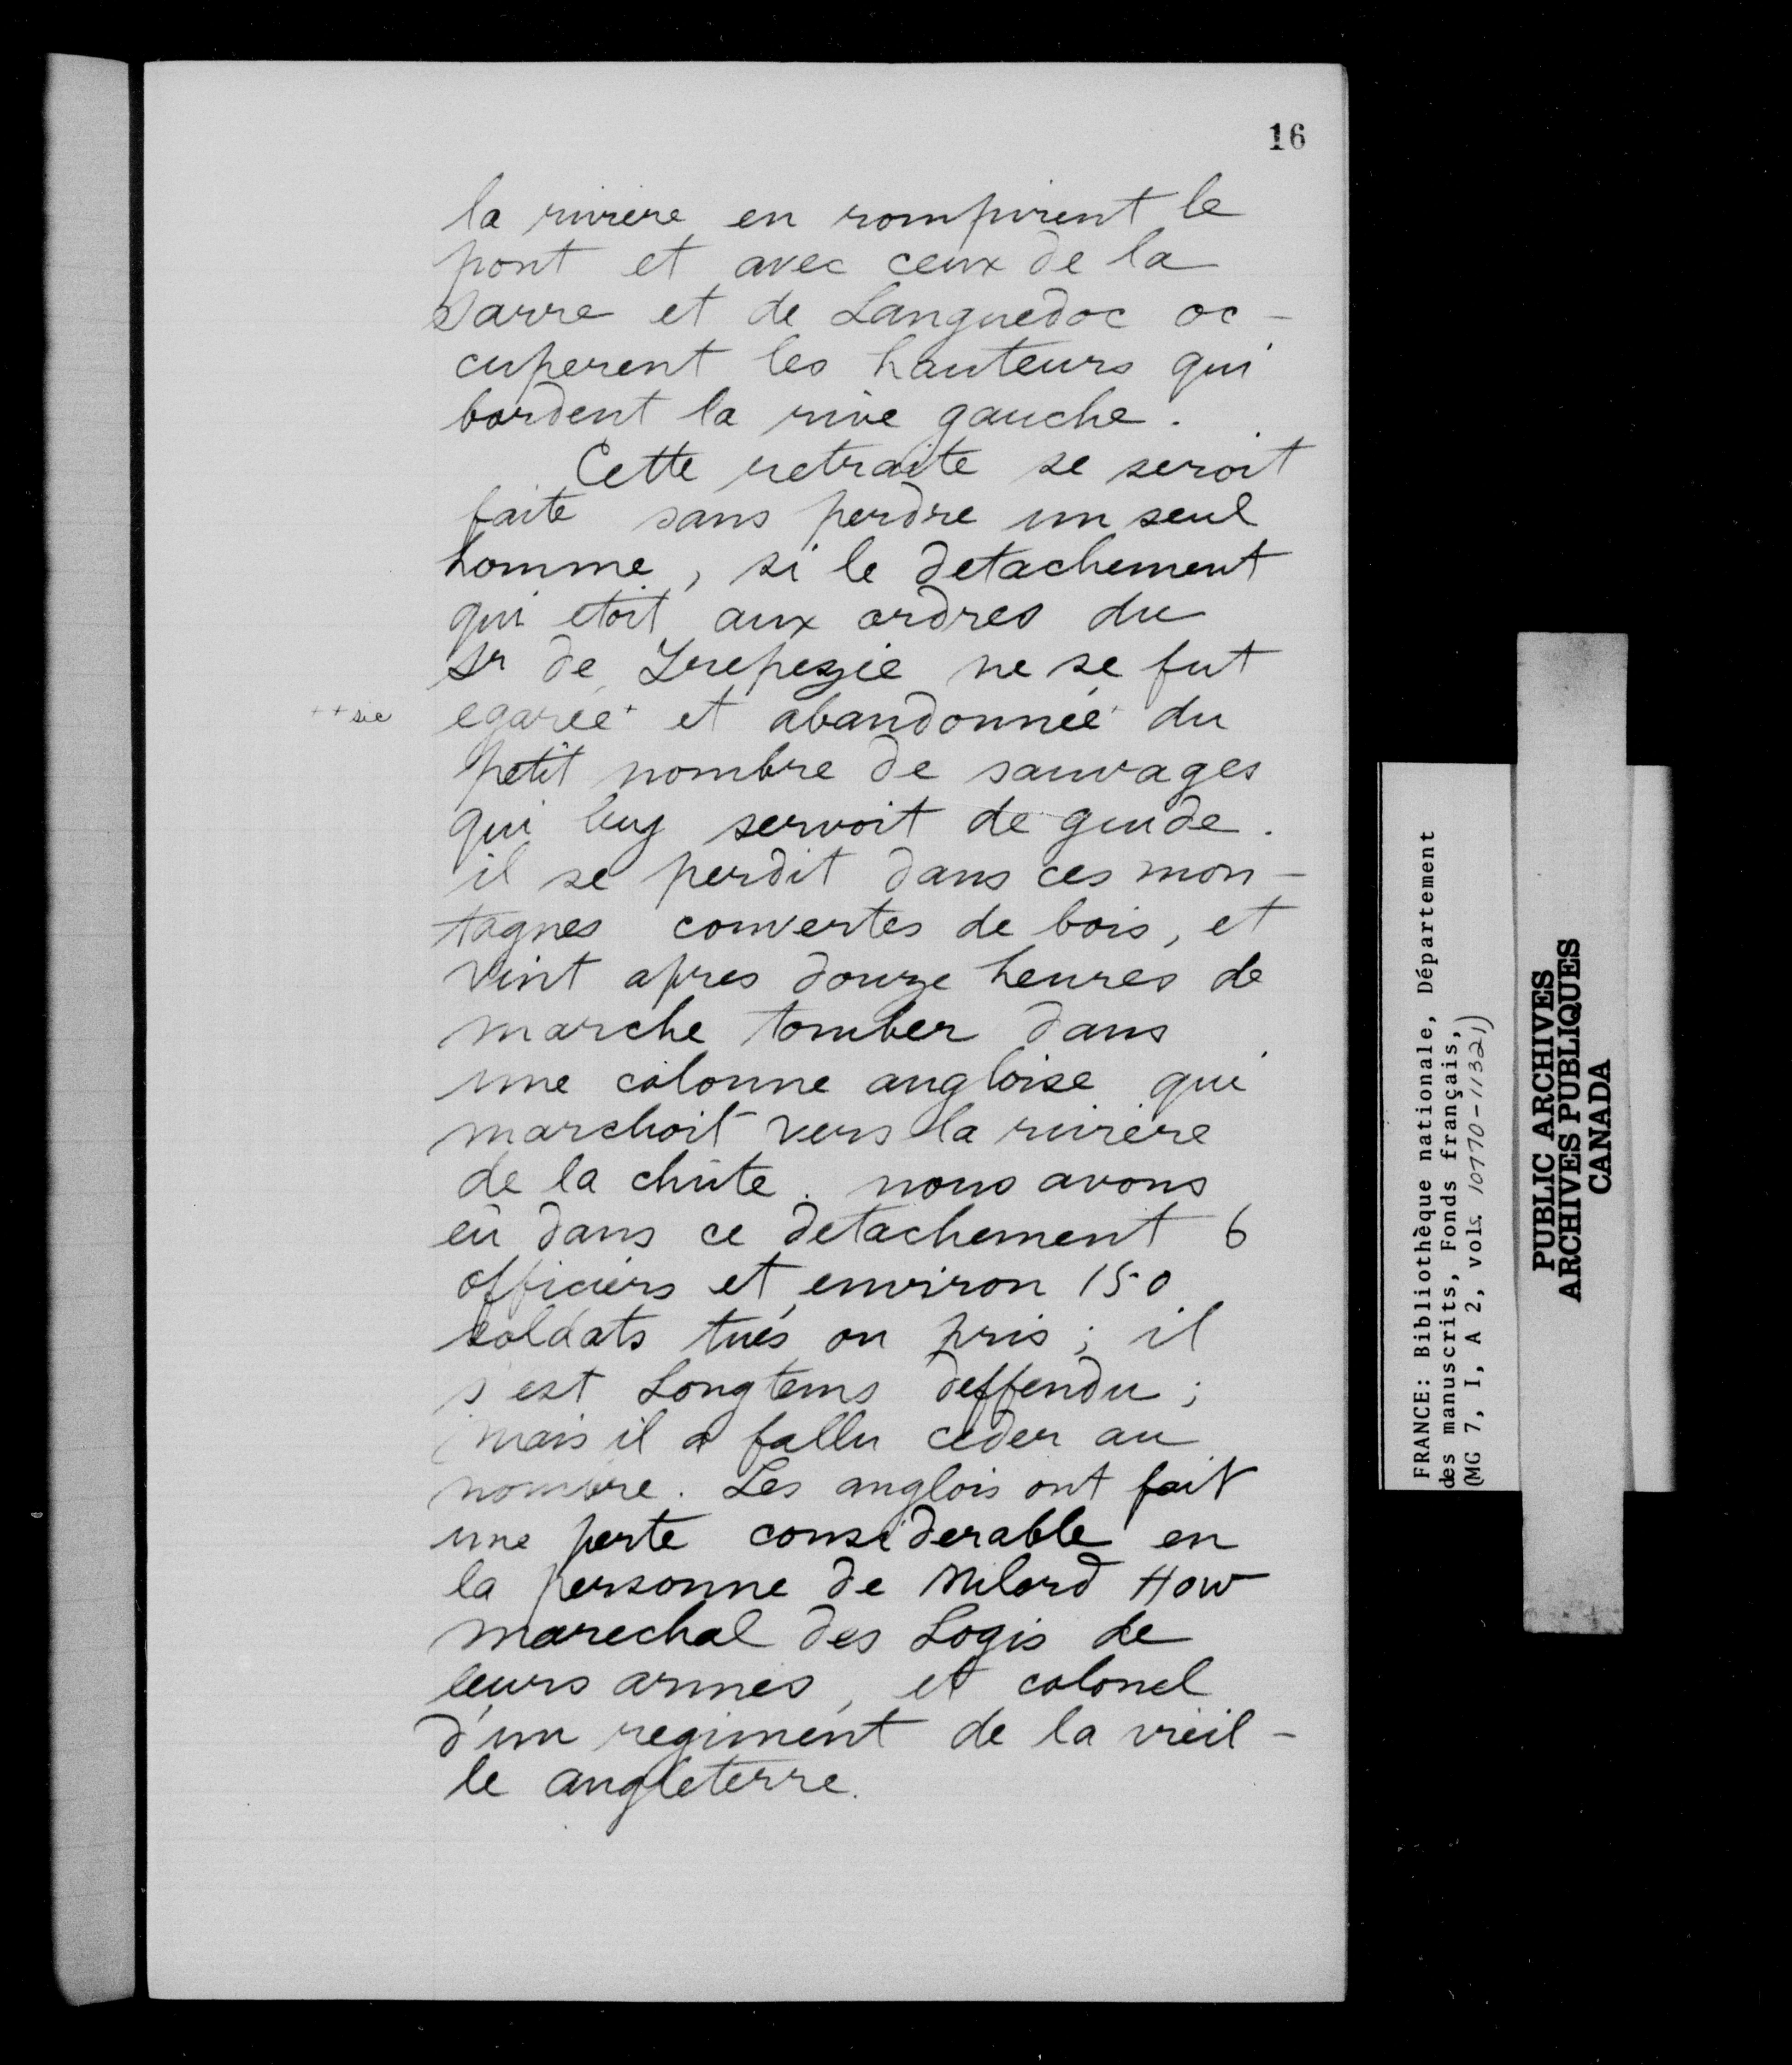 16
la riviere en rompirent le
pont et avec ceux de la
Sarre et de Languedoc oc-
cuperent les hauteurs qui
bordent la rive gauche.
Cette retraite se seroit
faite sans perdre un seul
homme, si le detachement
qui etoit aux ordres du
Sr de Trepezie ne se fut
++ sic egarée+ et abandonnée+ du
petit nombre de sauvages
qui luy servoit de guide.
il se perdit dans ces mon-
tagnes couvertes de bois, et
vint apres douze heures de
marche tomber dans
une colonne angloise qui
marchoit vers la riviere
de la chûte. nous avons
eû dans ce detachement 6
officiers et environ 150
soldats tués ou pris; il
s'est Longtems deffendu;
mais il a fallu ceder au
nombre. Les anglois ont fait
une perte considerable en
la personne de Milord How
marechal des Logis de
leurs armés, et colonel
d'un regiment de la vieil-
le angleterre.
FRANCE: Bibliothèque nationale, Département
des manuscrits, Fonds français,
(MG 7, I, A 2, vols. 10770-11321)
PUBLIC ARCHIVES
ARCHIVES PUBLIQUES
CANADA